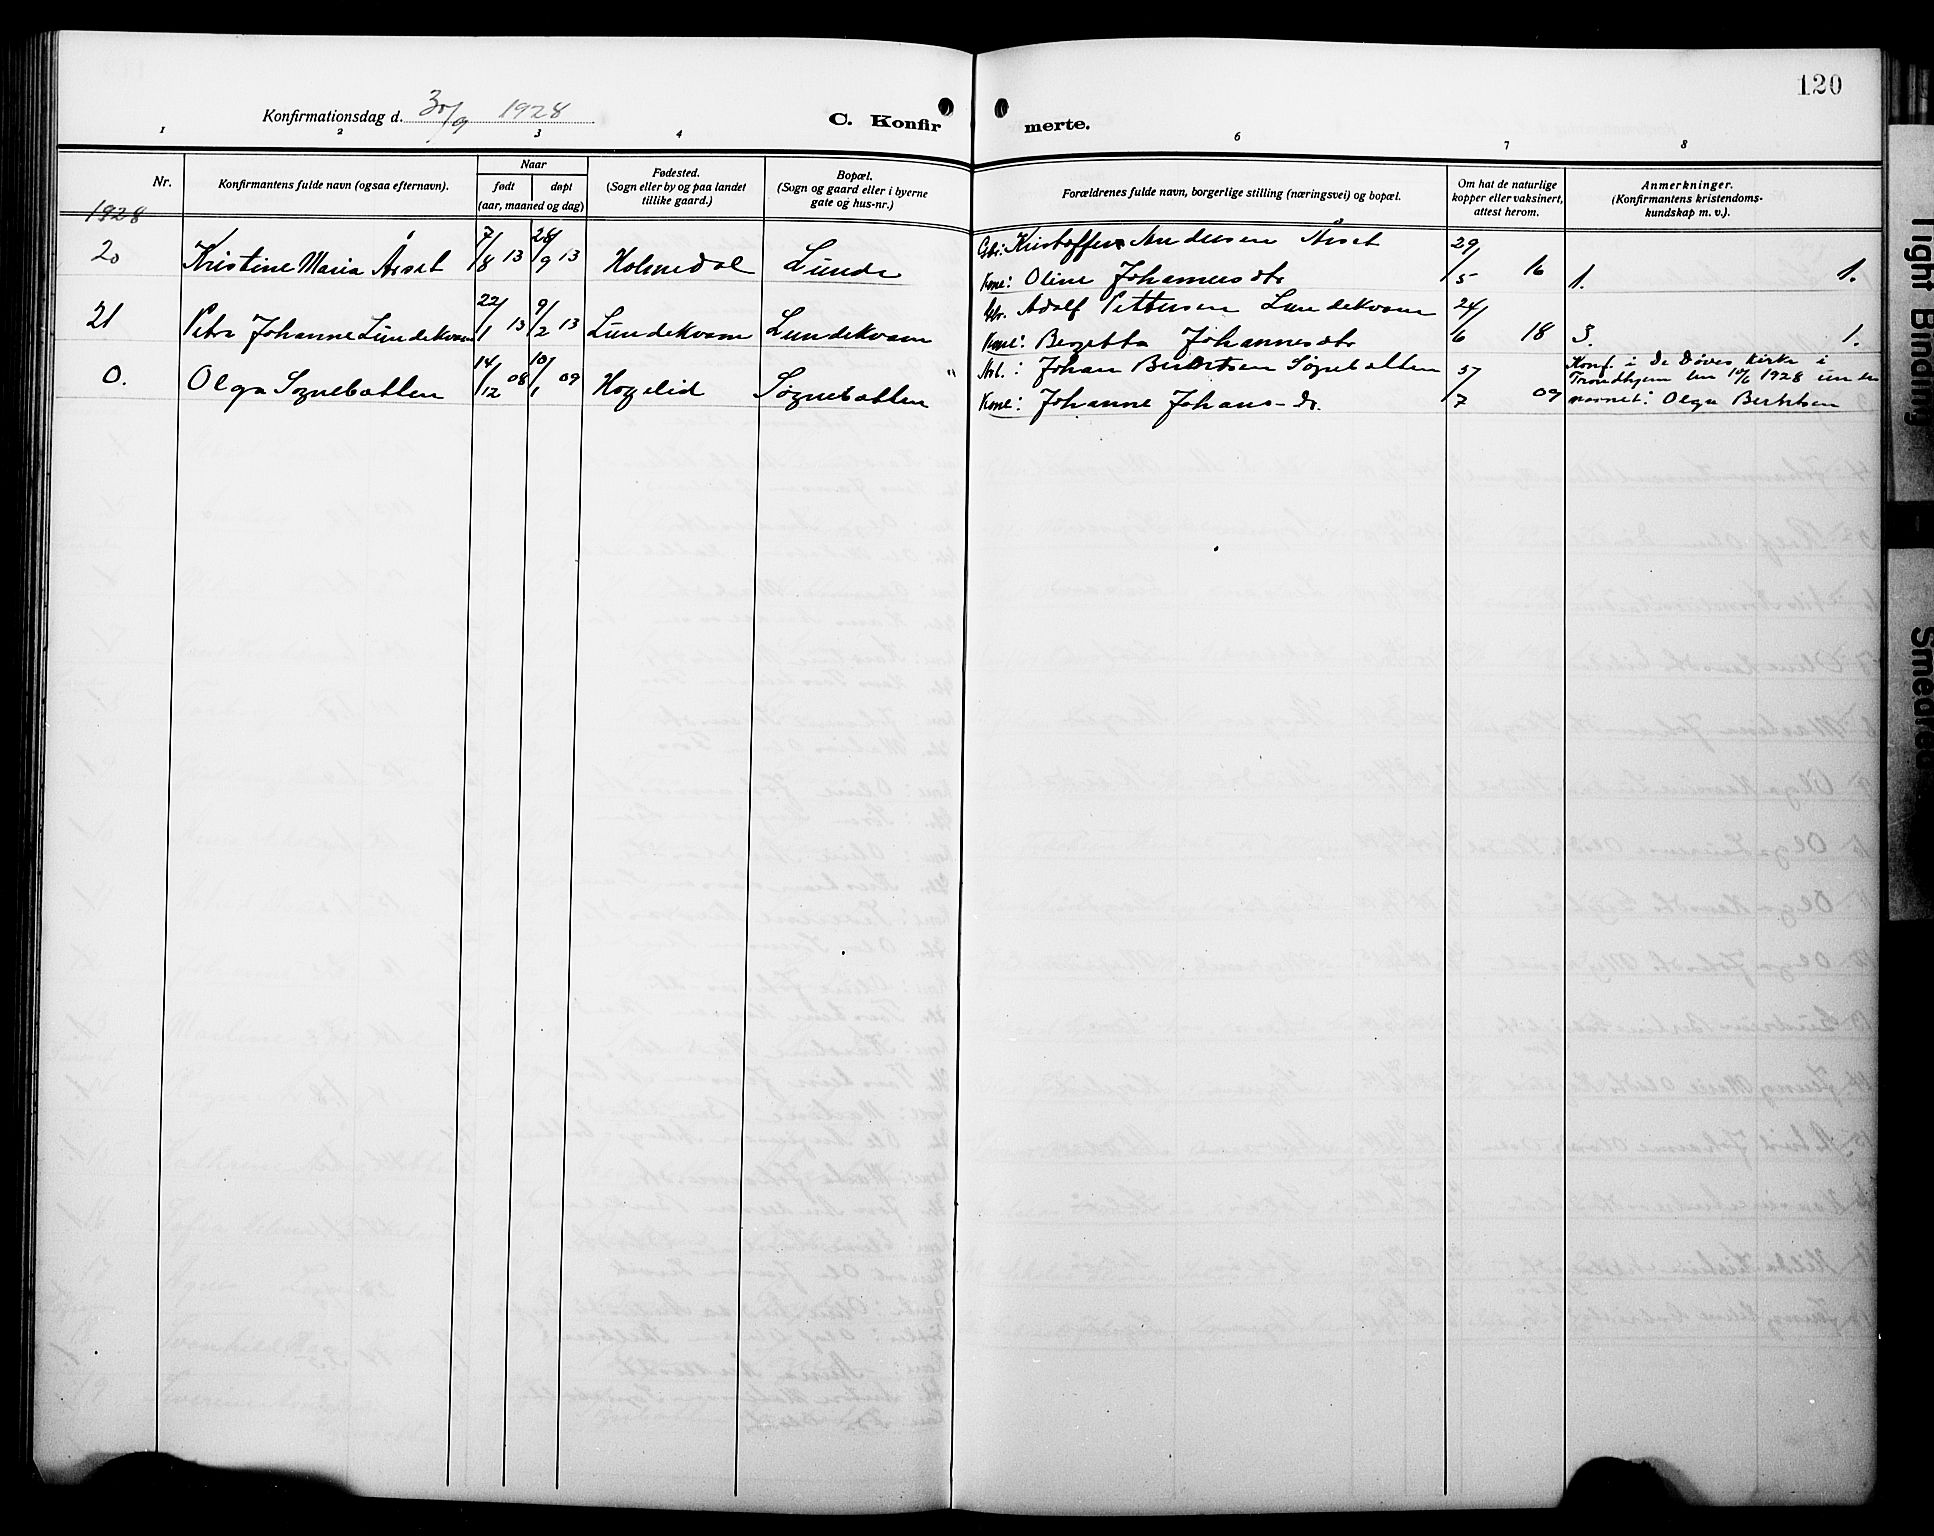 120
Konfirmationsdag d. 30/9 1928
C. Konfirmerte.
1 2 3 4 6 7 8
Nr.
Konfirmantens fulde navn (ogsaa efternavn).
Naar
født døpt
(aar, maaned og dag)
Fødested.
(Sogn eller by og paa landet
tillike gaard.)
Bopæl.
(Sogn og gaard eller i byerne
gate og hus-nr.)
Forældrenes fulde navn, borgerlige stilling (næringsvei) og bopæl.
Om hat de naturlige
kopper eller vaksinert,
attest herom.
Anmerkninger.
(Konfirmantens kristendoms-
kundskap m. v.).
1928
20 Kristine Maria Årset 7/8 13 28/9 13 Holmedal Lunde Gbr: Kristoffer Andersen Årset 29/5 16 1. 1.
Kone: Oline Johannesdtr
21 Petra Johanne Lundekvam 22/1 13 9/2 13 Lundekvam Lundekvam Gbr. Adolf Pettersen Lundekvam 24/6 18 3. 1.
Kone: Bergitta Johannesdtr
0. Olga Sognebotten 14/12 08 10/1 09 Hogelid Søgnebotten " Arb.: Johan Berntsen Søgnebotten 5/7 09 Konf. i de Døves kirke i
Trondhjem den 10/6 1928 under
Kone: Johanne Johans-dr. navnet: Olga Berntsen
Tight Binding